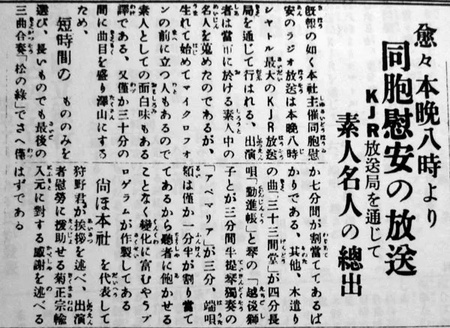 愈々本晩八時より
同胞慰安の放送
KJR放送局を通じて
素人名人の總出
既報の如く本社主催同胞慰
安のラジオ放送は本晩八時
シヤトル最大のKJR放送
局を通じて行はれる、出演
者は當市に於ける素人中の
名人を蒐めたのであるが、
生れて始めてマイクロフオ
ンの前に立つ人もあるので
素人としての面白味もある
譯である、又僅か三十分の
間に曲目を盛り澤山にする
ため、
短時間の もののみを
選び、長いものでも最後の
三曲合奏「松の緑」でさへ僅
か七分間が割當てゝあるば
かりである、其他、木遣り
の曲「三十三間堂」が四分長
唄、「勸進帳」と琴の「越後獅
子」とが三分間牛提琴獨奏の
「アベマリア」が三分、端唄
類は僅か一分半が割り當て
てあるから聽者に他かせる
ことなく變化に富むやうプ
ログゲムが作製してある
尙ほ本社 を代表して
狩野君が挨拶を述べ、出演
者慰勞に援助せる菊正宗輸
入元に對する感謝を述べる
はずである